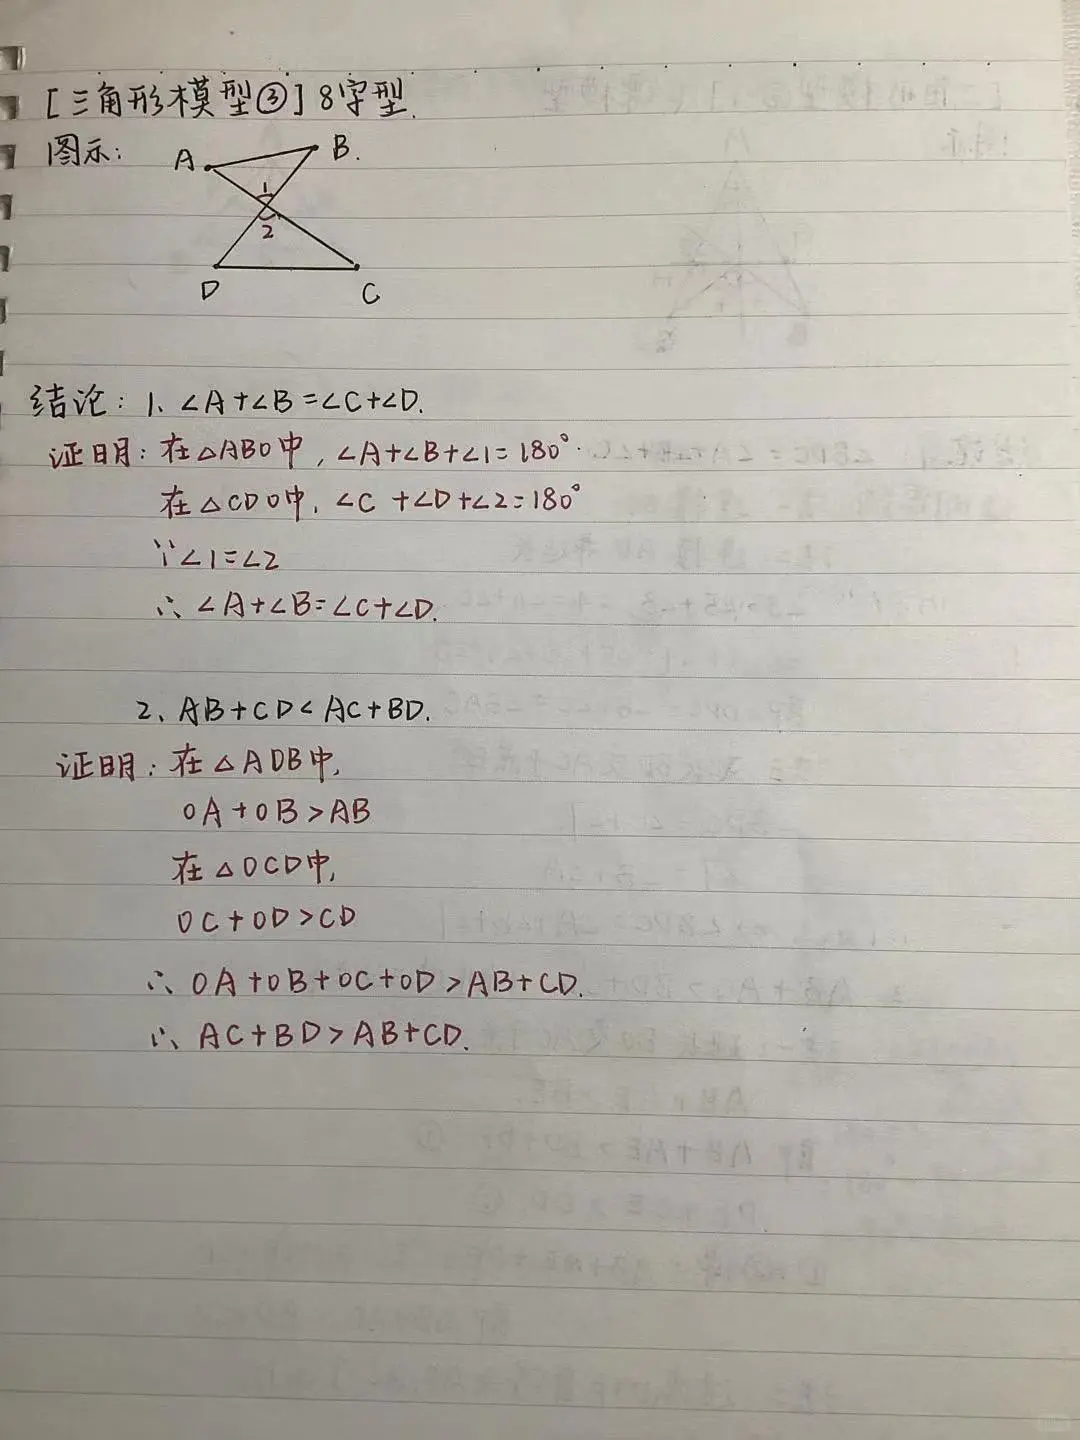 [三角形模型③]8字型.
图示:
A
B.
1
2
D
C
结论: 1、∠A+∠B=∠C+∠D.
证明: 在△ABO中, ∠A+∠B+∠1=180°.
在△CDO中, ∠C+∠D+∠2=180°
∵∠1=∠2
∴∠A+∠B=∠C+∠D.
2、AB+CD<AC+BD.
证明: 在△AOB中,
OA+OB>AB
在△OCD中,
OC+OD>CD
∴OA+OB+OC+OD>AB+CD.
∴AC+BD>AB+CD.